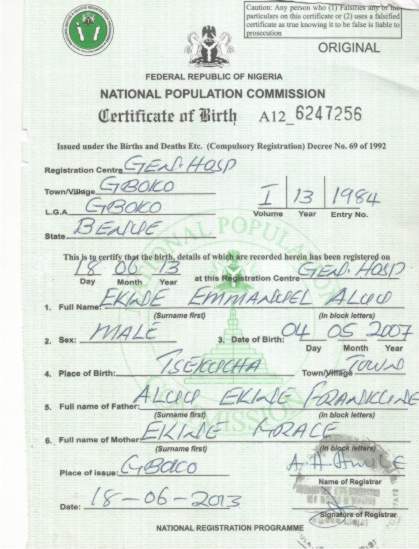 Caution: Any person who (1) Falsifies any of the
particulars on this certificate or (2) uses a falsified
certificate as true knowing it to be false is liable to
prosecution
ORIGINAL
FEDERAL REPUBLIC OF NIGERIA
NATIONAL POPULATION COMMISSION
Certificate of Birth A12_6247256
Issued under the Births and Deaths Etc. (Compulsory Registration) Decree No. 69 of 1992
Registration Centre GEN. HOSP
Town/Village GBOKO
L.G.A GBOKO
I 13 1984
Volume Year Entry No.
State BENUE
This is to certify that the birth, details of which are recorded herein has been registered on
18 06 13 at this Registration Centre GEN. HOSP
Day Month Year
1. Full Name: EKINE EMMANUEL ALUU
(Surname first) (In block letters)
2. Sex: MALE 3. Date of Birth: 04 05 2007
Day Month Year
4. Place of Birth: Town/Village TOWN
5. Full name of Father: ALUU EKINE FRANKLINE
(Surname first) (In block letters)
6. Full name of Mother: EKINE GRACE
(Surname first) (In block letters)
Place of issue: GBOKO
Name of Registrar
Date: 18-06-2013
Signature of Registrar
NATIONAL REGISTRATION PROGRAMME